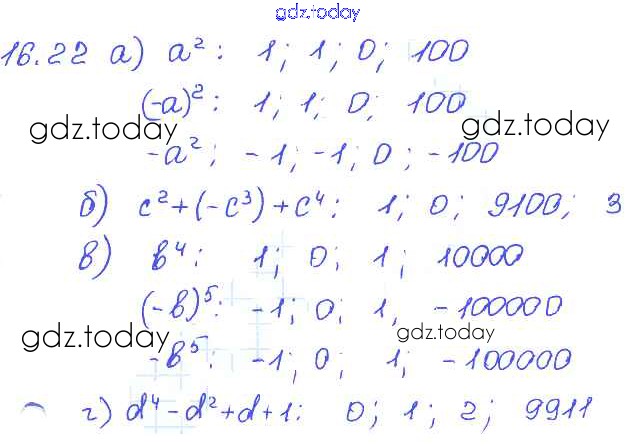 gdz.today
16.22 а) a² : 1; 1; 0; 100
(-a)² : 1; 1; 0; 100
gdz.today gdz.today
-a² ; -1; -1; 0; -100
б) c²+(-c³)+c⁴: 1; 0; 9100; 3
в) b⁴: 1; 0; 1; 10000
(-b)⁵: -1; 0; 1, -100000
gdz.today gdz.today
-b⁵: -1; 0; 1; -100000
г) d⁴-d²+d+1: 0; 1; 2; 9911